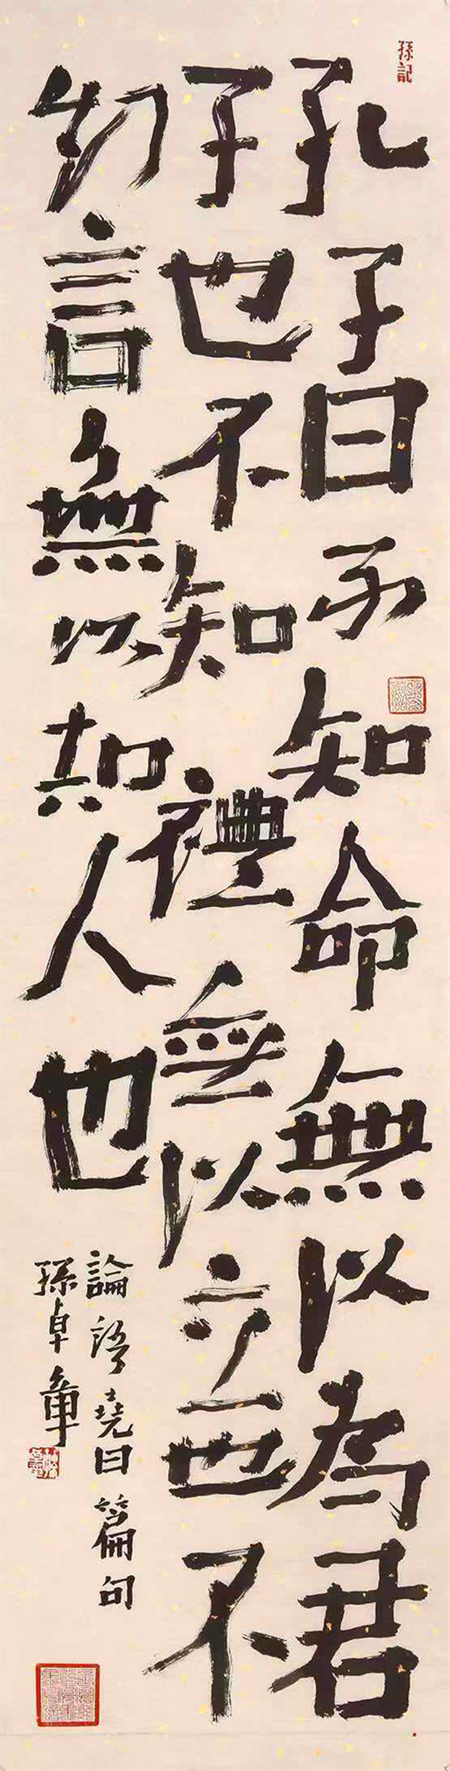 孫記
孔子曰不知命無以為君
子也不知禮無以立也不
知言無以知人也
論語堯曰篇句
孫卓章